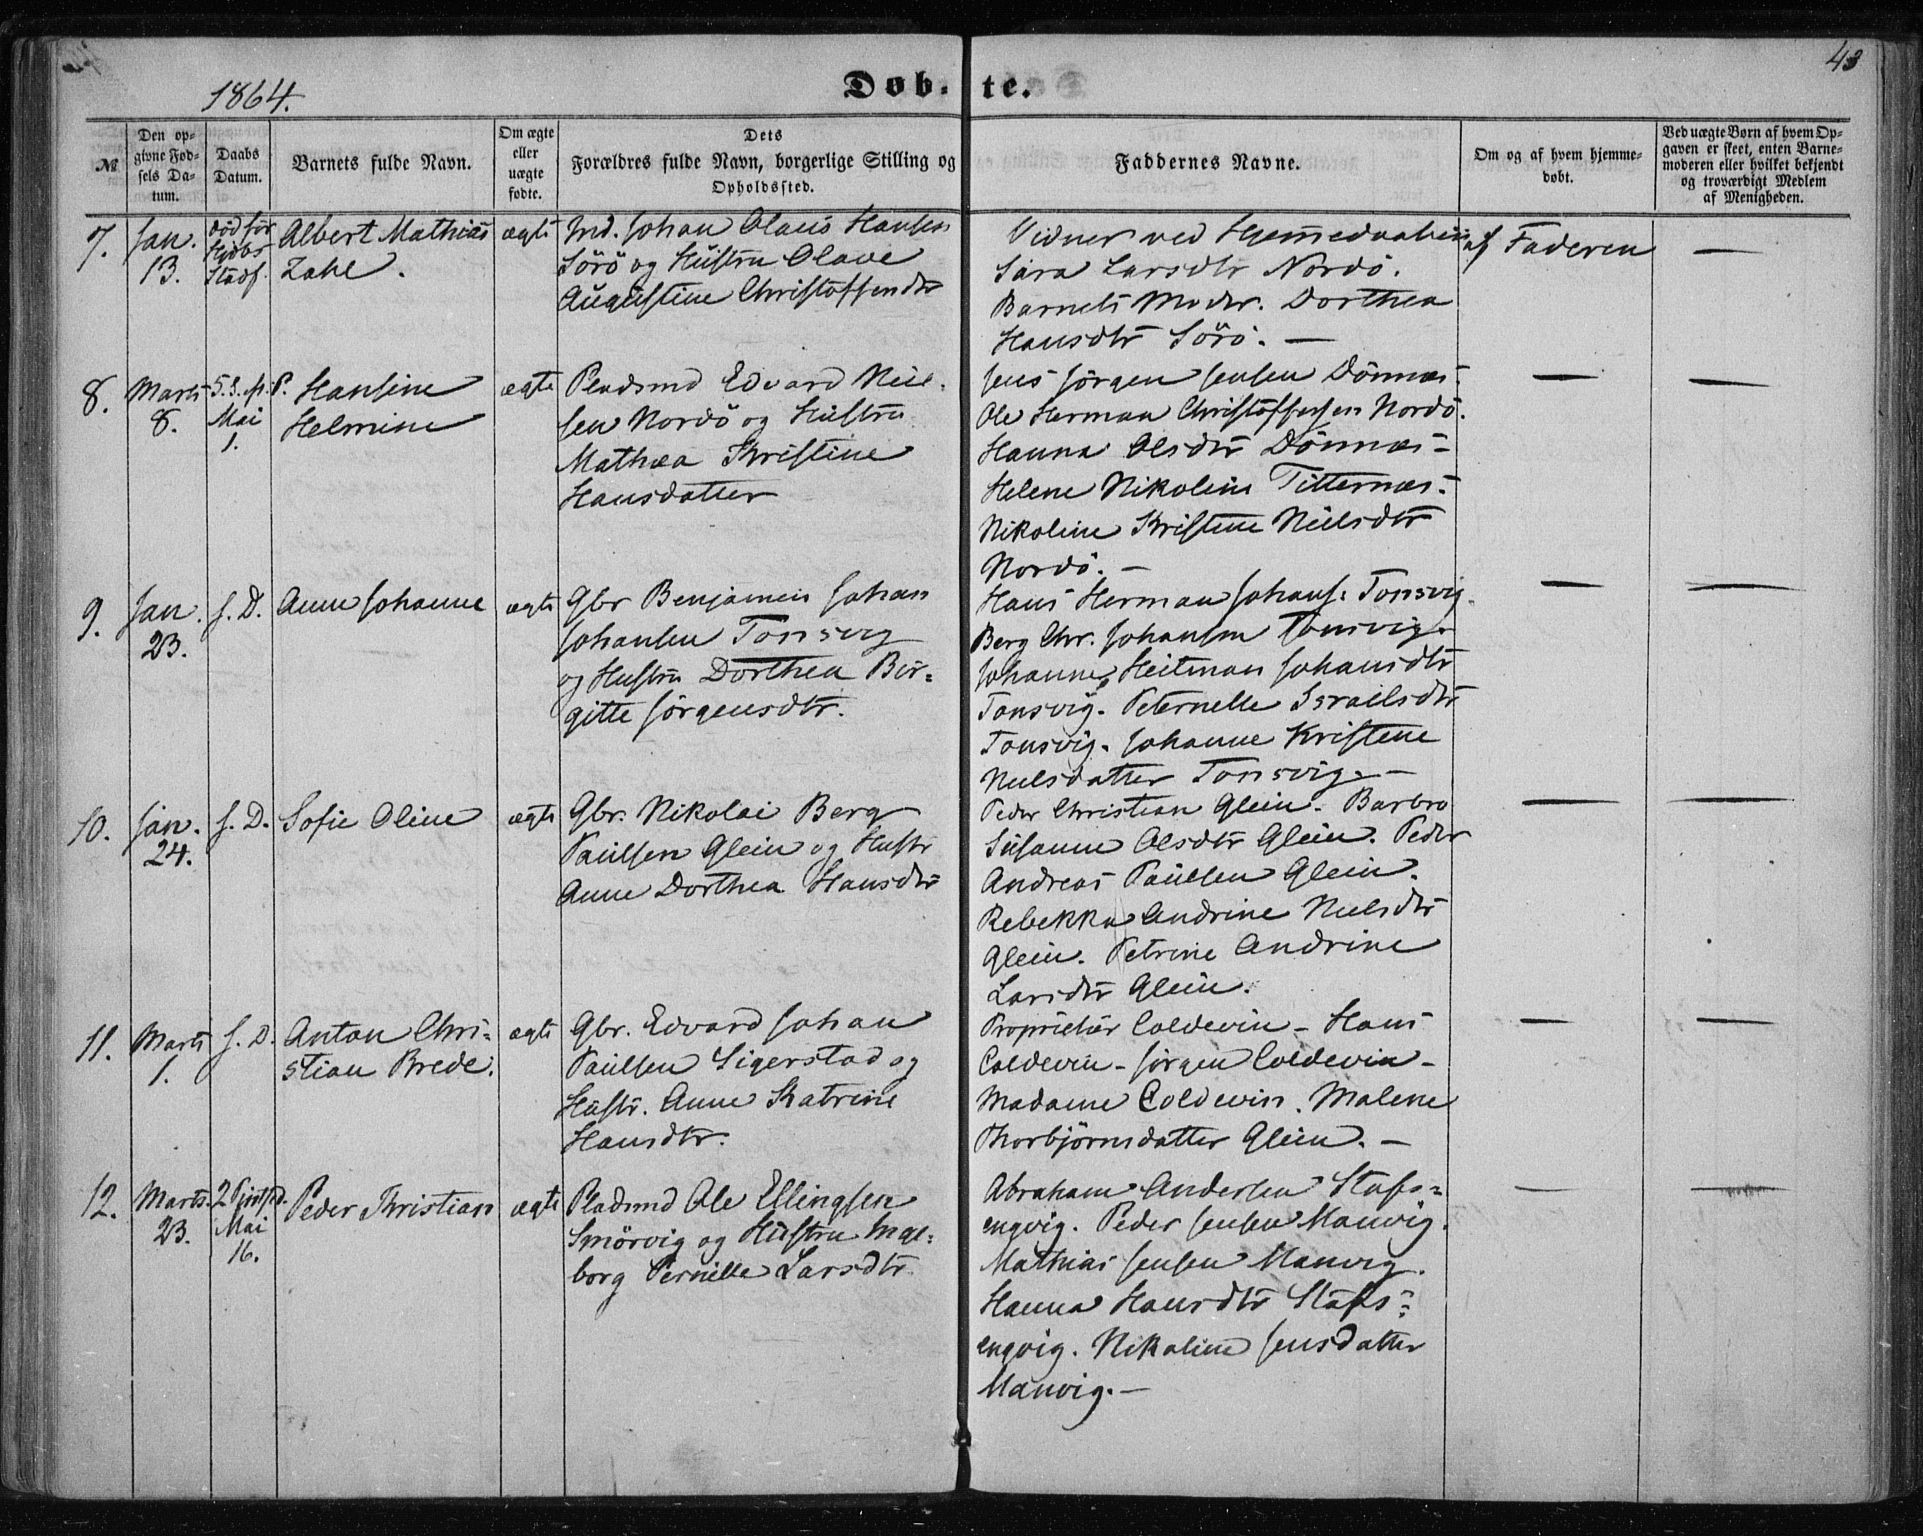 1864.
Døb-te.
43
№
Den op-
givne Fød-
sels Da-
tum.
Daabs
Datum.
Barnets fulde Navn.
Om ægte
eller
uægte
fødte.
Dets
Forældres fulde Navn, borgerlige Stilling og
Opholdssted.
Faddernes Navne.
Om og af hvem hjemme-
døbt.
Ved uægte Børn af hvem Op-
gaven er skeet, enten Barne-
moderen eller hvilket bekjendt
og troværdigt Medlem
af Menigheden.
7.
Jan.
13.
død før
Hjdbs
Stadf.
Albert Mathias
Zahl.
ægte
Ind. Johan Olaus Hansen
Sörö og Hustru Olave
Augustine Christoffersdtr
Vidner ved Hjemmedaaben
Sara Larsdtr Nordö.
Barnets Moder. Dorthea
Hansdtr Sörö. —
af Faderen
—
8.
Marts
8.
5. S. e. P.
Mai
1.
Hansine
Helmine
ægte
Pladsmd Edvard Niel-
sen Nordö og Hustru
Mathea Kristine
Hansdatter
Jens Jörgen Jensen Dönnæs-
Ole Herman Christoffersen Nordö.
Hanna Olsdtr Dönnæs-
Helene Nikoline Titternæs-
Nikoline Kristine Nielsdtr
Nordö. —
—
—
9.
Jan.
23.
s. D.
Anne Johanne
ægte
Gbr Benjamin Johan
Johansen Tonsvig
og Hustru Dorthea Bir-
gitte Jörgensdtr.
Hans Herman Johans. Tonsvig.
Berg Chr. Johansen Tonsvig-
Johanne Heitman Johansdtr
Tonsvig. Peternelle Israelsdtr
Tonsvig. Johanne Kristine
Nielsdatter Tonsvig. —
—
—
10.
Jan.
24.
s. D.
Sofie Oline
ægte
Gbr. Nikolai Berg
Paulsen Glein og Hustr
Anne Dorthea Hansdtr
Peder Christian Glein. Barbro
Susanne Olsdtr Glein. Peder
Andreas Paulsen Glein.
Rebekka Andrine Nielsdtr
Glein. Petrine Andrine
Larsdtr Glein.
—
—
11.
Marts
1.
s. D.
Anton Chri-
stian Brede.
ægte
Gbr. Edvard Johan
Paulsen Sigerstad og
Hustr. Anne Katrine
Hansdtr.
Proprietær Coldevin - Hans
Coldevin - Jörgen Coldevin -
Madame Coldevin. Malene
Thorbjörnsdatter Glein. —
—
—
12.
Marts
23.
2 Pintsed.
Mai
16.
Peder Kristian
ægte
Pladsmd Ole Ellingsen
Smörvig og Hustru Inge-
borg Pernille Larsdtr
Abraham Andersen Stafs-
engvig. Peder Jensen Manvig.
Mathias Jensen Manvig.
Hanna Hansdtr Stafs-
engvig. Nikoline Jensdatter
Manvig. —
—
—